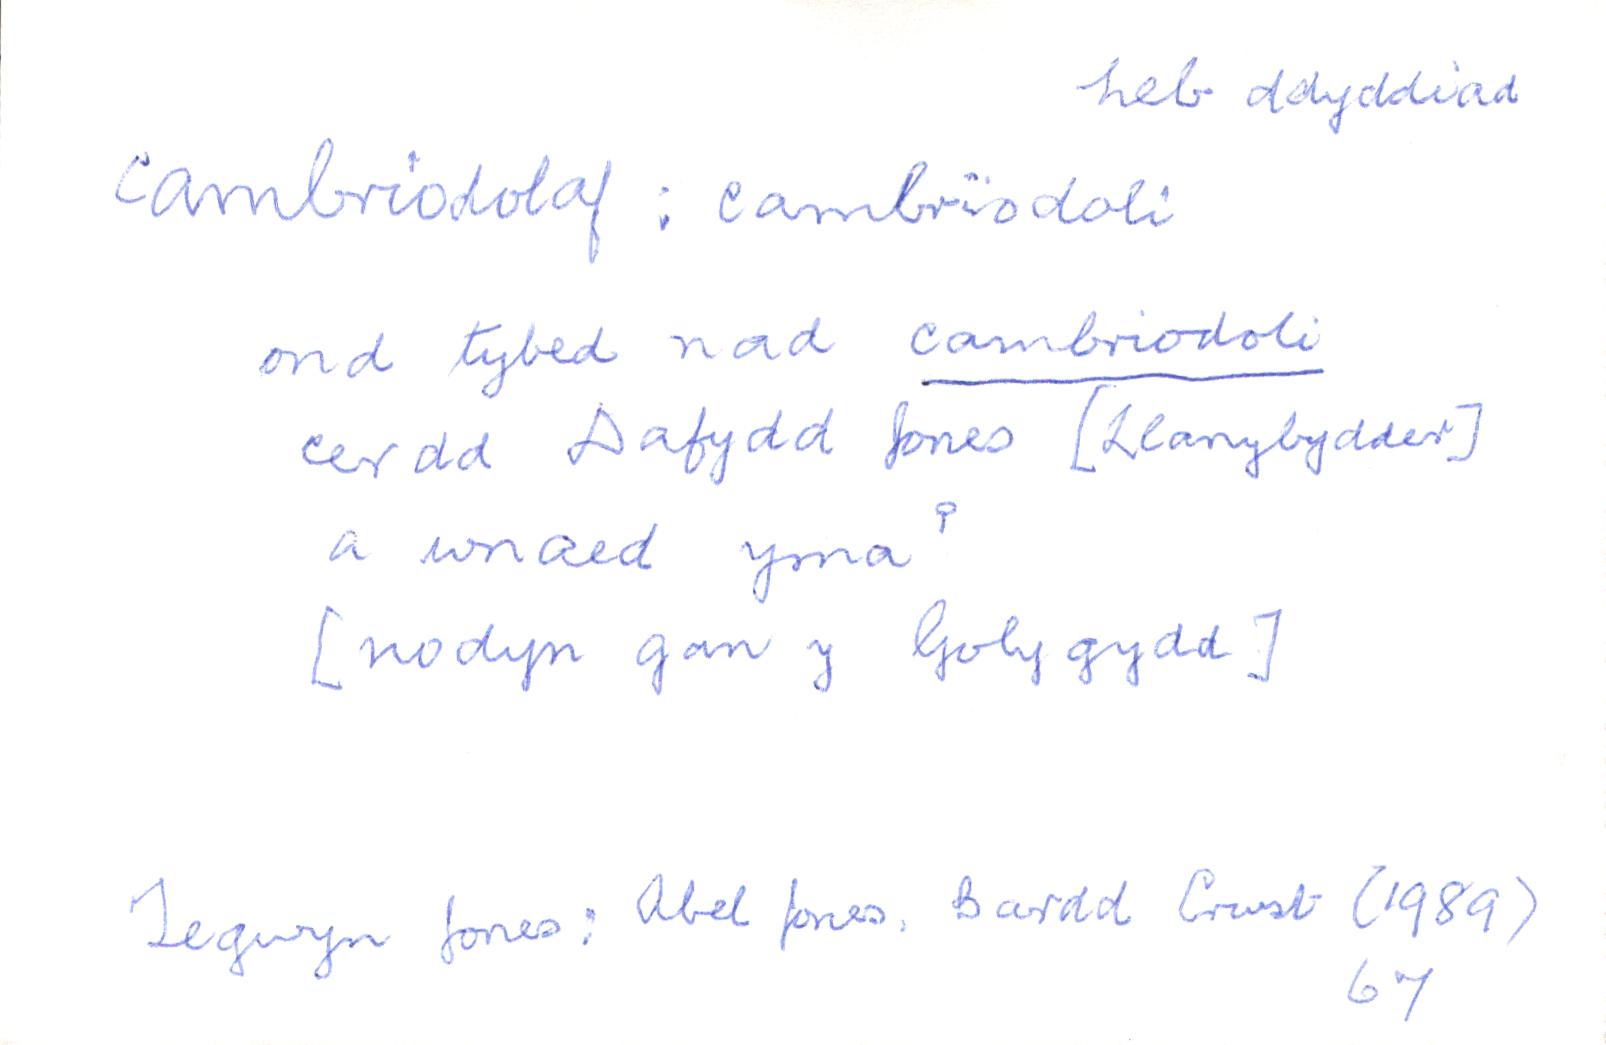 heb ddyddiad
cambriodolaf : cambriodoli
ond tybed nad cambriodoli
cerdd Dafydd Jones [Llanybydder]
a wnaed yma?
[nodyn gan y Golygydd]
Tegwyn Jones: Abel Jones, Bardd Crwst (1989)
67